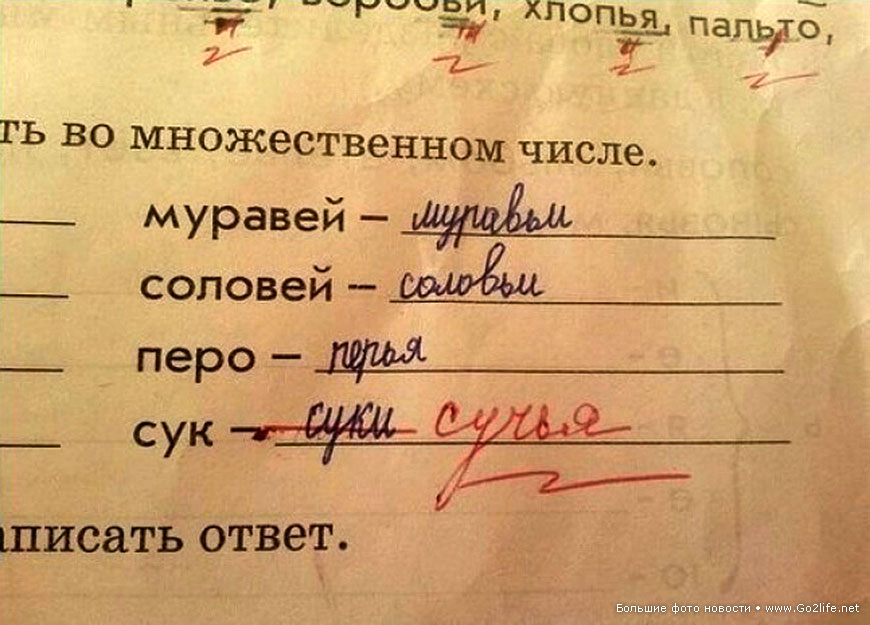 воробьи, хлопья, пальто,
ть во множественном числе.
муравей – муравьи
соловей – соловьи
перо – перья
сук – суки сучья
аписать ответ.
Большие фото новости • www.Go2life.net